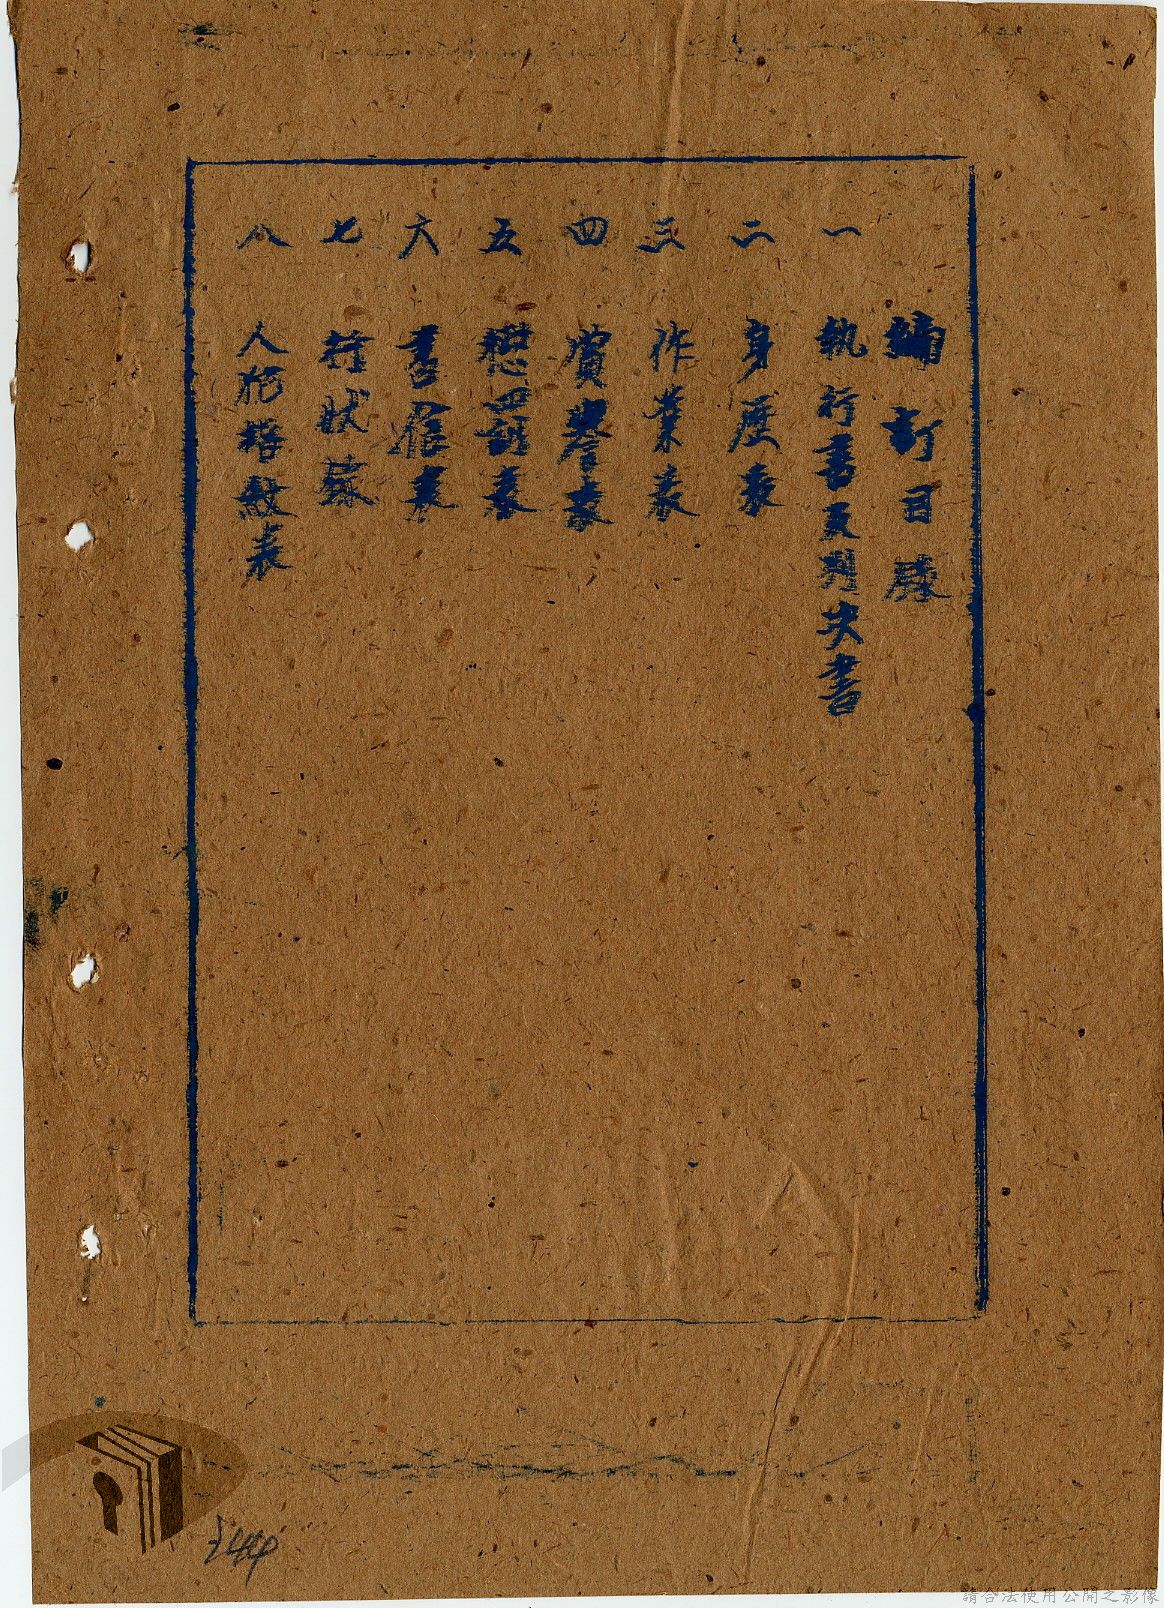 編訂目錄
一 執行書及判決書
二 身歷表
三 作業表
四 賞譽表
五 懲罰表
六 書信表
七 行狀錄
八 人相指紋表
244
請合法使用公開之影像